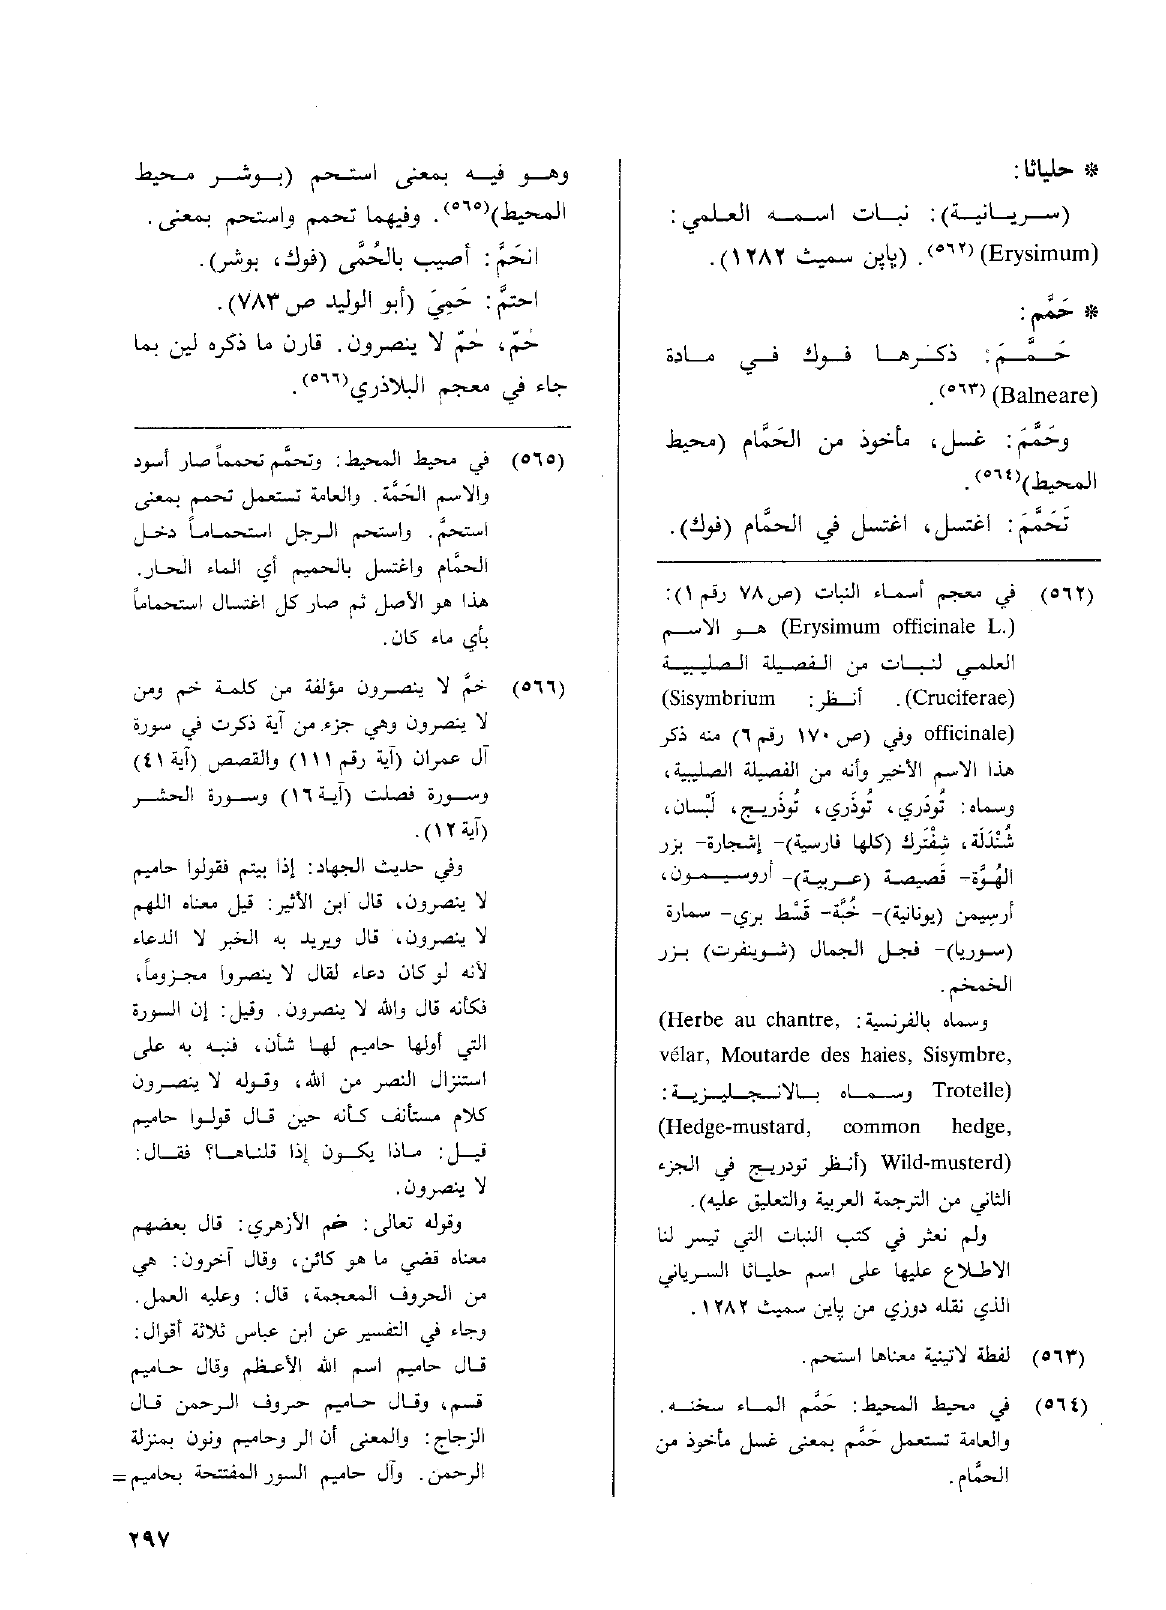 * حلياثا:
(سريانية): نبات اسمه العلمي:
(Erysimum)(٥٦٢). (پاين سميث ١٢٨٢).
* حَمَّم:
حَمَّمَ: ذكرها فوك في مادة
(Balneare)(٥٦٣).
وحَمَّمَ: غسل، مأخوذ من الحَمَّام (محيط
المحيط)(٥٦٤).
تَحَمَّمَ: اغتسل، اغتسل في الحمَّام (فوك).
(٥٦٢) في معجم أسماء النبات (ص٧٨ رقم ١):
(Erysimum officinale L.) هو الاسم
العلمي لنبات من الفصيلة الصليبية
(Cruciferae). أنظر: (Sisymbrium
officinale) وفي (ص ١٧٠ رقم ٦) منه ذكر
هذا الاسم الأخير وأنه من الفصيلة الصليبية،
وسماه: تُوذَري، تُوذَري، تُوذَريج، لَبْسان،
شُنْدَلَة، شِفْتَرك (كلها فارسية)- إشجارة- بزر
الهُوَّة- قَصِيصة (عربية)- أروسيمون،
أرسيمن (يونانية)- خُبَّة- قَسْط بري- سمارة
(سوريا)- فجل الجمال (شوينفرت) بزر
الخمخم.
وسماه بالفرنسية: (Herbe au chantre,
vélar, Moutarde des haies, Sisymbre,
Trotelle) وسماه بالانجليزية:
(Hedge-mustard, common hedge,
Wild-musterd) (أنظر تودريج في الجزء
الثاني من الترجمة العربية والتعليق عليه).
ولم نعثر في كتب النبات التي تيسر لنا
الاطلاع عليها على اسم حلياثا السرياني
الذي نقله دوزي من پاين سميث ١٢٨٢.
(٥٦٣) لفظة لاتينية معناها استحم.
(٥٦٤) في محيط المحيط: حَمَّم الماء سخنه.
والعامة تستعمل حَمَّم بمعنى غسل مأخوذ من
الحمَّام.
وهو فيه بمعنى استحم (بوشر محيط
المحيط)(٥٦٥). وفيهما تحمم واستحم بمعنى.
انحَمَّ: أصيب بالحُمَّى (فوك، بوشر).
احتمَّ: حَمِيَ (أبو الوليد ص ٧٨٣).
حُمّ، حُمّ لا ينصرون. قارن ما ذكره لين بما
جاء في معجم البلاذري(٥٦٦).
(٥٦٥) في محيط المحيط: وتحمَّم تحمماً صار أسود
والاسم الحَمَّة. والعامة تستعمل تحمم بمعنى
استحمَّ. واستحم الرجل استحماماً دخل
الحمَّام واغتسل بالحميم أي الماء الحار.
هذا هو الأصل ثم صار كل اغتسال استحماماً
بأي ماء كان.
(٥٦٦) حمَّ لا ينصرون مؤلفة من كلمة حم ومن
لا ينصرون وهي جزء من آية ذكرت في سورة
آل عمران (آية رقم ١١١) والقصص (آية ٤١)
وسورة فصلت (آية ١٦) وسورة الحشر
(آية ١٢).
وفي حديث الجهاد: إذا بيتم فقولوا حاميم
لا ينصرون، قال ابن الأثير: قيل معناه اللهم
لا ينصرون، قال ويريد به الخبر لا الدعاء
لأنه لو كان دعاء لقال لا ينصروا مجزوماً،
فكأنه قال والله لا ينصرون. وقيل: إن السورة
التي أولها حاميم لها شأن، فنبه به على
استنزال النصر من الله، وقوله لا ينصرون
كلام مستأنف كأنه حين قال قولوا حاميم
قيل: ماذا يكون إذا قلناها؟ فقال:
لا ينصرون.
وقوله تعالى: حم الأزهري: قال بعضهم
معناه قضي ما هو كائن، وقال آخرون: هي
من الحروف المعجمة، قال: وعليه العمل.
وجاء في التفسير عن ابن عباس ثلاثة أقوال:
قال حاميم اسم الله الأعظم وقال حاميم
قسم، وقال حاميم حروف الرحمن قال
الزجاج: والمعنى أن الر وحاميم ونون بمنزلة
الرحمن. وآل حاميم السور المفتتحة بحاميم=
٢٩٧